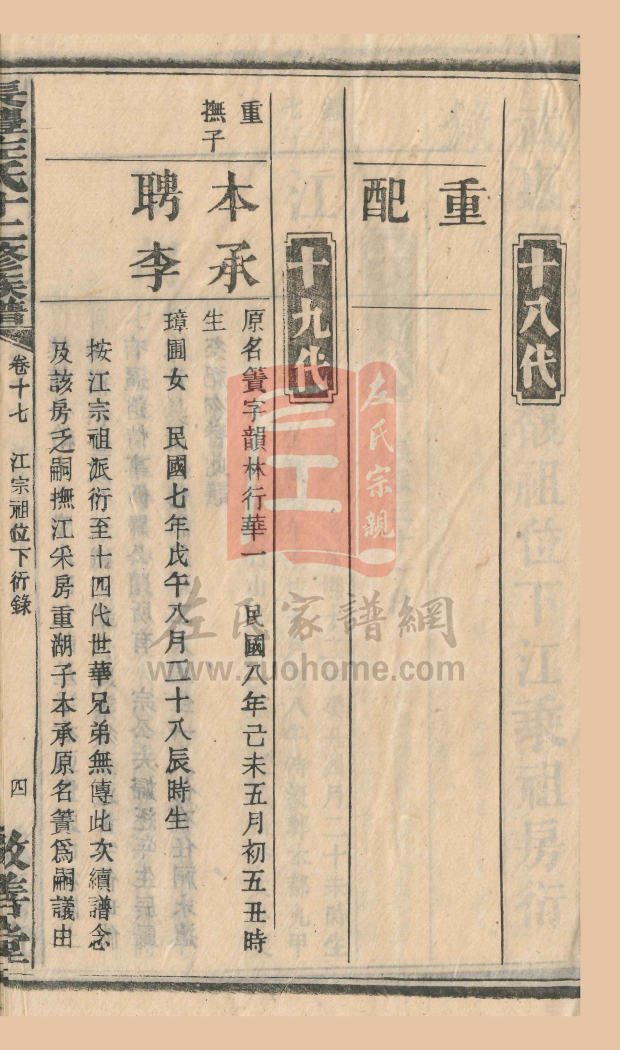 十八代
重
配
十九代
重
撫子
本承
聘李
原名簣字韻林行華一 民國八年己未五月初五丑時
生
璋圃女 民國七年戊午八月二十八辰時生
按江宗祖派衍至十四代世華兄弟無傳此次續譜念
及該房乏嗣撫江采房重湖子本承原名簣爲嗣議由
長澧左氏十二修族譜
卷十七
江宗祖位下衍錄
四
敦善堂
左氏宗親
左氏家譜網
www.zuohome.com